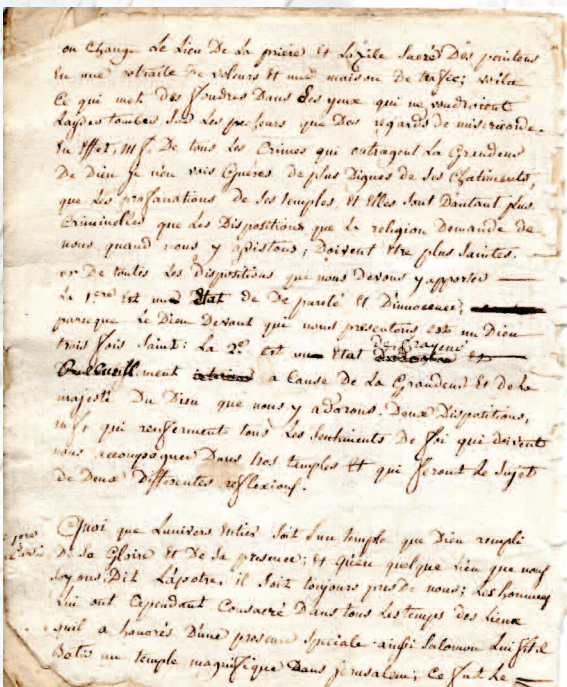 on Change Le Lieu De La prière Et Lazile Sacré Des
En une retraite De voleurs Et une maison De trafic; voila
Ce qui met des foudres Dans Ses yeux qui ne voudroient
Laisser tomber sur Les pecheurs que Des regards de misericorde.
En Effet, M.f. De tous Les Crimes qui outragent La Grandeur
De Dieu je n'en vois Guéres de plus Dignes de Ses Chatiments,
que Les profanations de Ses temples, Et Elles sont Dautant plus
Criminelles que Les Dispositions que La religion Demande de
nous quand nous y assistons, Doivent Etre plus Saintes.
or De toutes Les dispositions que nous devons y apporter
La 1ere Est une Etat de De pureté Et D'innocence,
parceque Le Dieu Devant qui nous presentons est un Dieu
trois fois Saint: La 2e. Est un Etat De frayeur Et
Recueillement a Cause De La Grandeur Et de La
majesté Du Dieu que nous y adorons. Deux Dispositions,
m.f. qui renferment tous Les Sentiments De foi qui doivent
nous accompagner Dans nos temples Et qui feront Le Sujet
de Deux Differentes reflexions.
1ere
Quoi que Lunivers Entier Soit un temple que Dieu remplit
De Sa Gloire Et De Sa presence; Et qu'en quelque lieu que nous
Soyons, Dit L'apotre, il Soit toujours pres de nous; Les hommes
Lui ont Cependant Consacré Dans tous Les temps des Lieux
quil a honorés D'une presence Speciale ainsi Salomon Lui fit il
Batir un temple magnifique Dans jerusalem; Ce fut Le